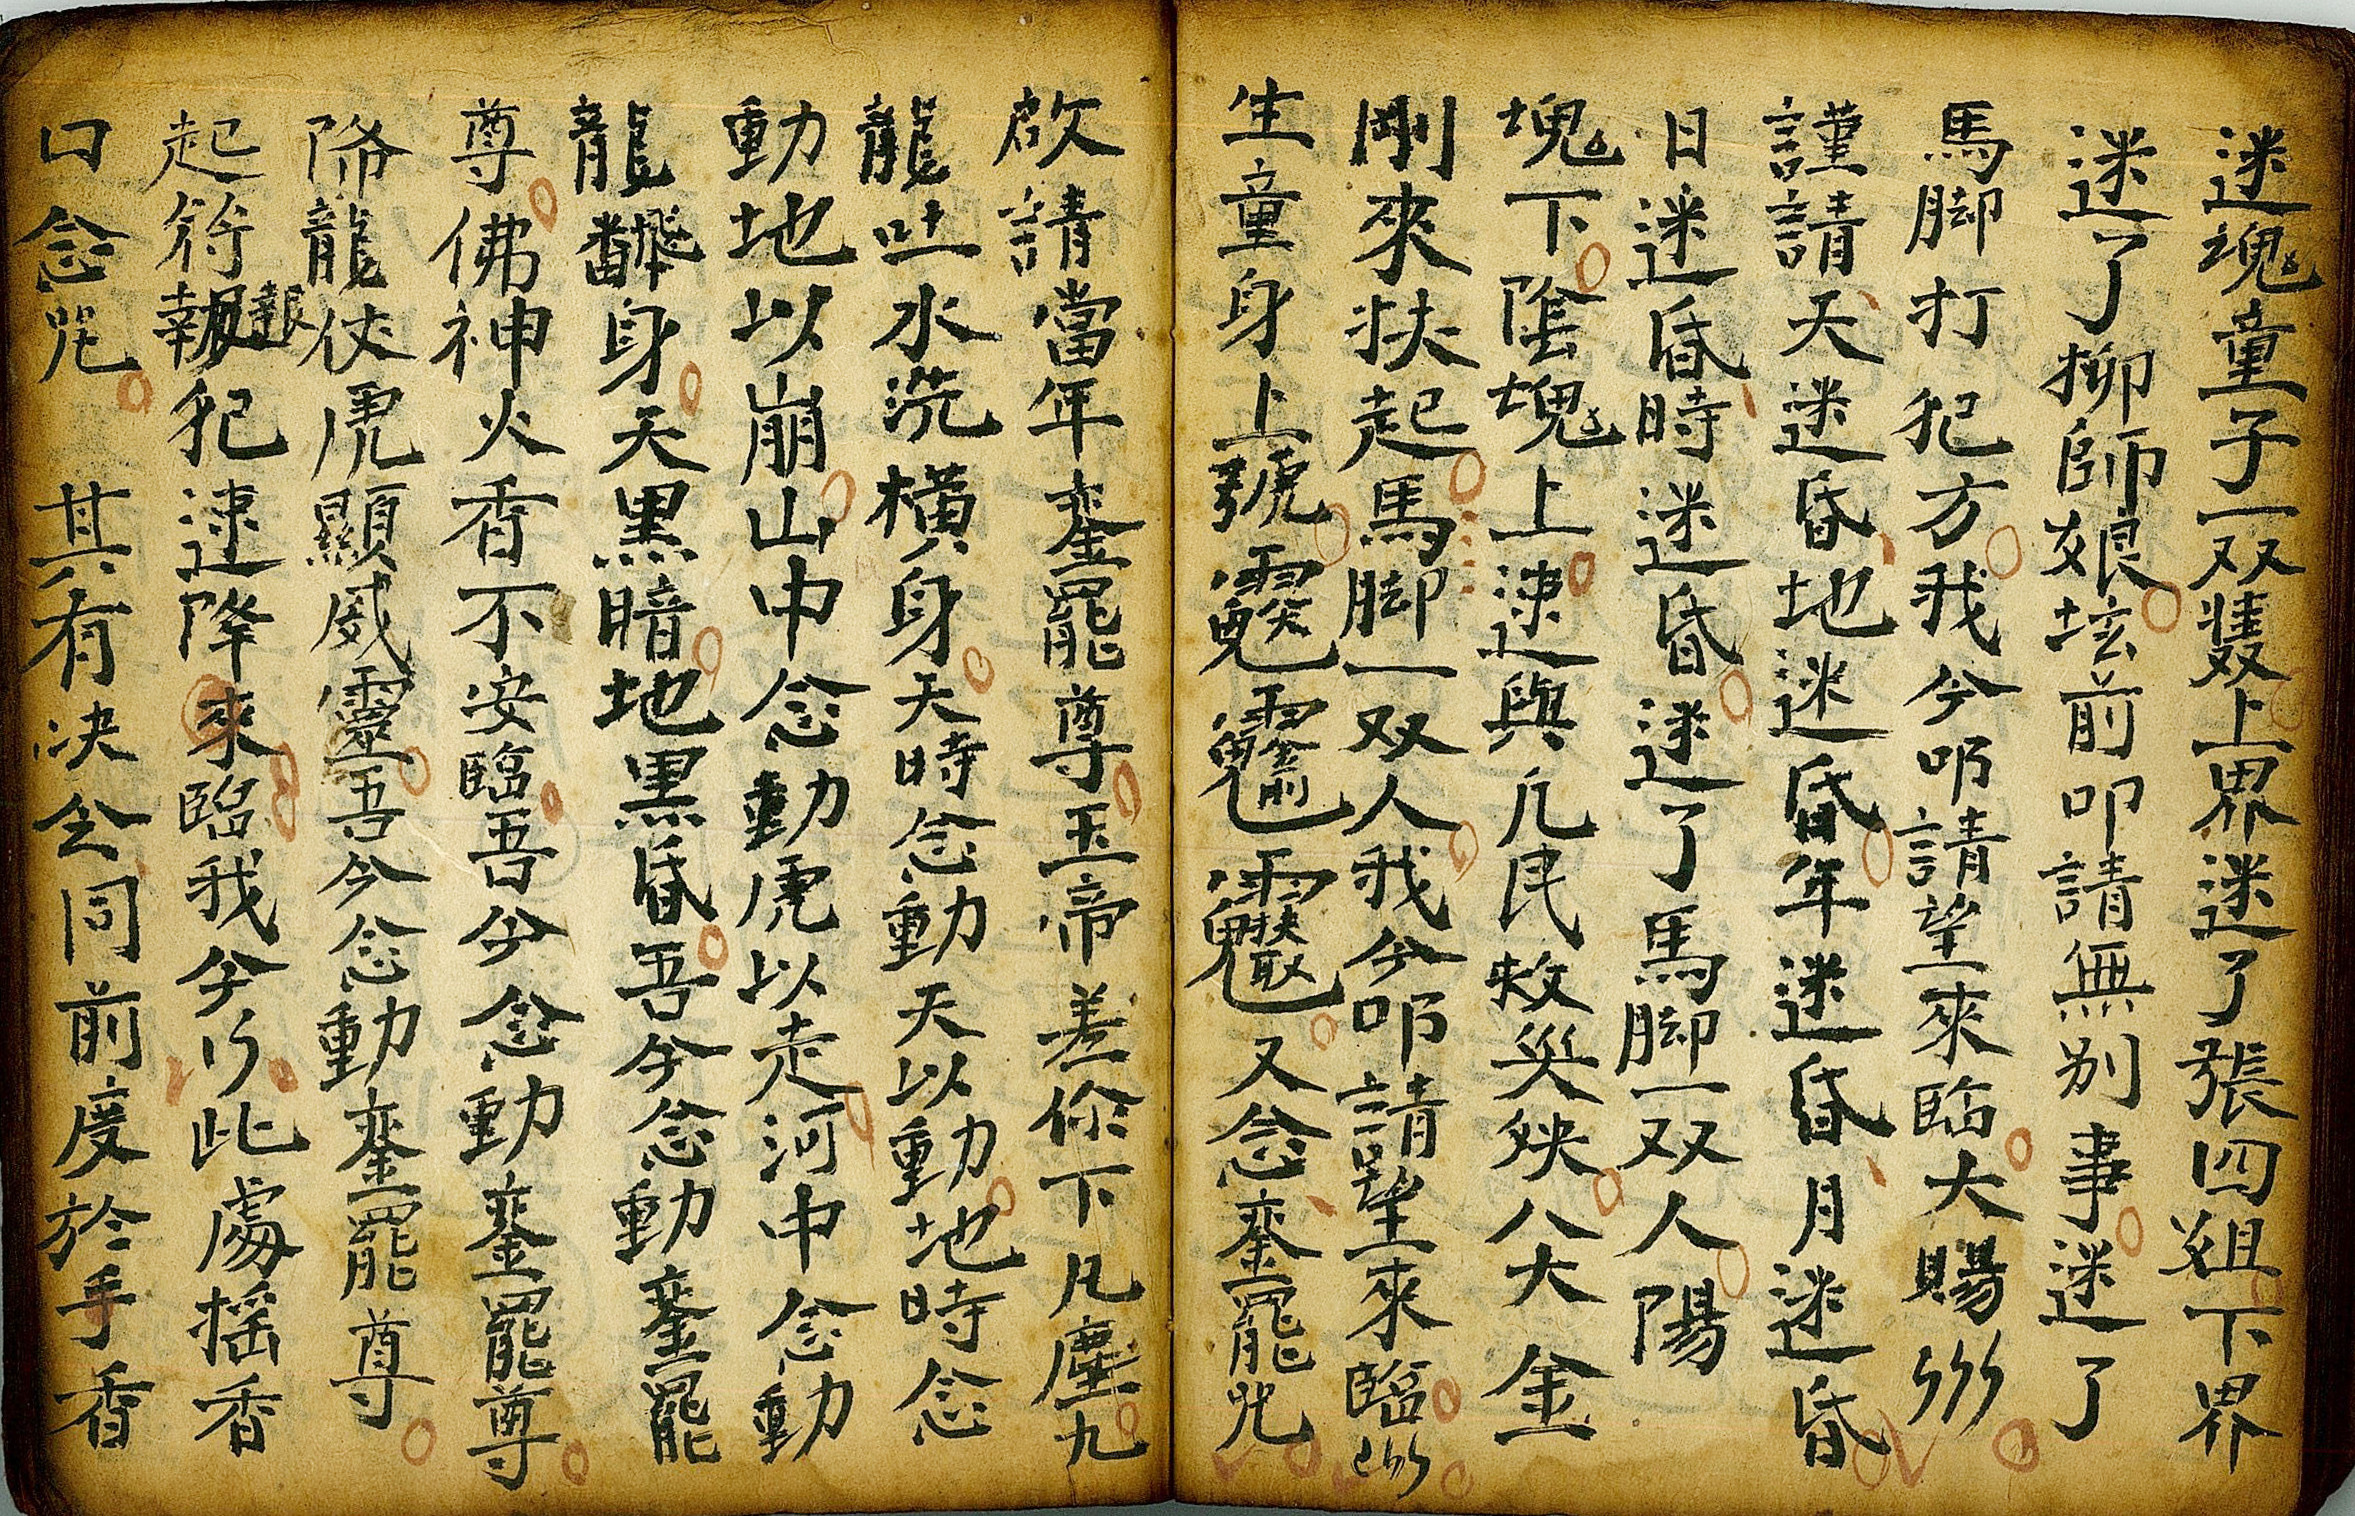 迷魂童子一双雙上界迷了張四姐下界
迷了柳師娘坛前叩請無别事迷了
馬脚打犯方我今叩請望來臨大賜
謹請天迷昏地迷昏年迷昏月迷昏
日迷昏時迷昏迷了馬脚一双人陽
塊下陰塊上速與凡民救災殃八大金
剛來扶起馬脚一双人我今叩請望來臨
生童身上號又念鑾罷咒
啟請當年鑾罷尊玉帝差你下凡塵九
龍吐水洗橫身天時念動天以動地時念
動地以崩山中念動虎以走河中念動
龍翻身天黑暗地黑昏吾今念動鑾罷
尊佛神火香不安臨吾今念動鑾罷尊
降龍伏虎顯威靈吾今念動鑾罷尊
起符報犯速降來臨我今以此處摇香
口念咒 其有决仝同前度於手香